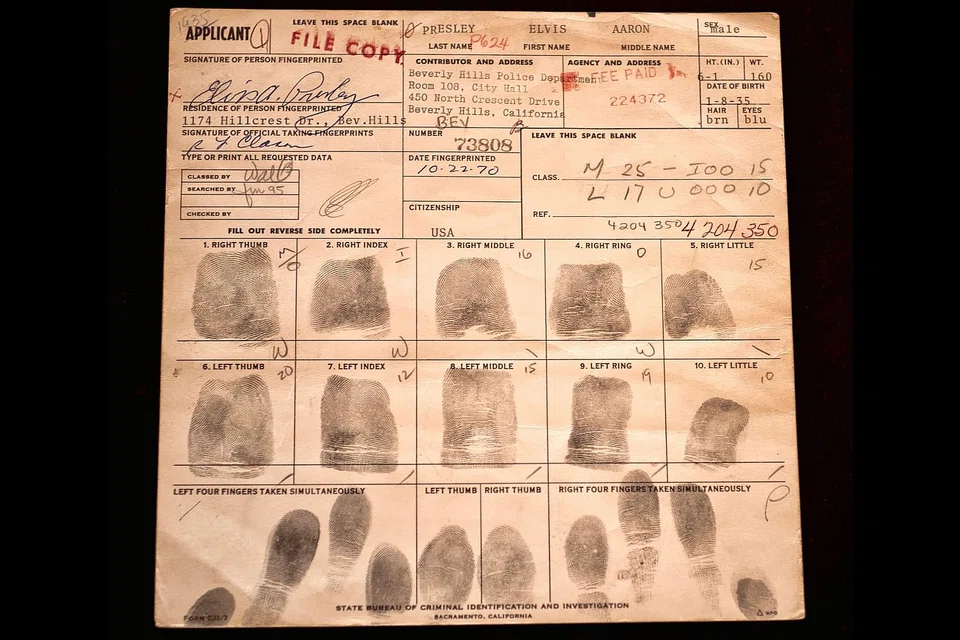 1635
APPLICANT 1
LEAVE THIS SPACE BLANK
FILE COPY
PRESLEY ELVIS AARON
P624
LAST NAME FIRST NAME MIDDLE NAME
SEX
male
SIGNATURE OF PERSON FINGERPRINTED
Elvis A. Presley
CONTRIBUTOR AND ADDRESS
Beverly Hills Police Department
Room 108, City Hall
450 North Crescent Drive
Beverly Hills, California
BEV
AGENCY AND ADDRESS
FEE PAID
224372
HT. (IN.) WT.
6-1 160
DATE OF BIRTH
1-8-35
HAIR EYES
brn blu
RESIDENCE OF PERSON FINGERPRINTED
1174 Hillcrest Dr., Bev.Hills
SIGNATURE OF OFFICIAL TAKING FINGERPRINTS
NUMBER
73808
LEAVE THIS SPACE BLANK
TYPE OR PRINT ALL REQUESTED DATA
DATE FINGERPRINTED
10-22-70
CLASS. M 25 - I00 15
L 17 U 000 10
CLASSIFIED BY
SEARCHED BY
CHECKED BY
CITIZENSHIP
USA
REF.
4204 350 4 204 350
FILL OUT REVERSE SIDE COMPLETELY
1. RIGHT THUMB 2. RIGHT INDEX 3. RIGHT MIDDLE 4. RIGHT RING 5. RIGHT LITTLE
M I 16 O 15
O
W W \ W \
6. LEFT THUMB 7. LEFT INDEX 8. LEFT MIDDLE 9. LEFT RING 10. LEFT LITTLE
20 12 15 19 10
/ / / / /
LEFT FOUR FINGERS TAKEN SIMULTANEOUSLY LEFT THUMB RIGHT THUMB RIGHT FOUR FINGERS TAKEN SIMULTANEOUSLY
STATE BUREAU OF CRIMINAL IDENTIFICATION AND INVESTIGATION
SACRAMENTO, CALIFORNIA
SPO